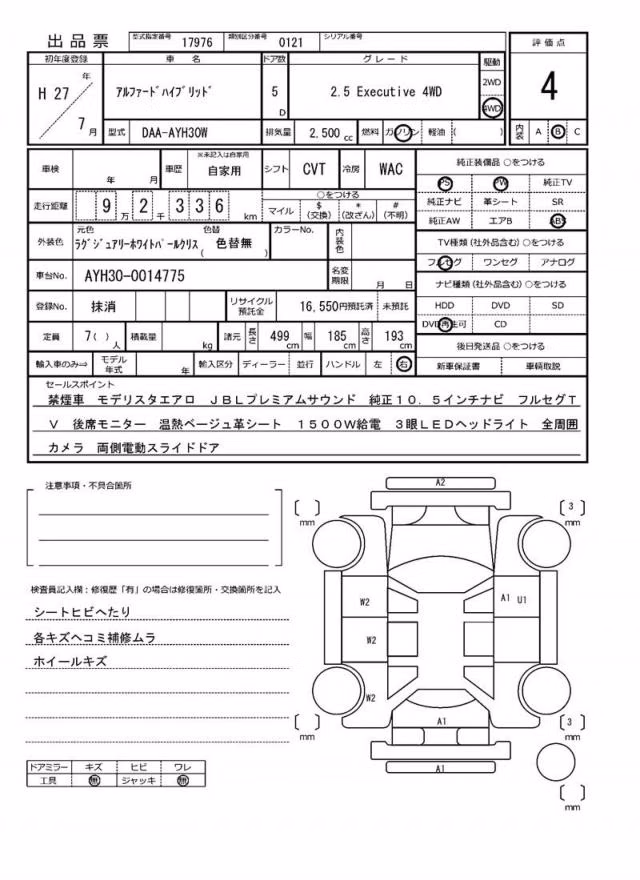 出品票
型式指定番号 17976 類別区分番号 0121 シリアル番号
初年度登録 車名 ドア数 グレード 駆動 評価点
H 27 年 7 月
アルファードハイブリッド
5 D
2.5 Executive 4WD
2WD
4WD
4
型式 DAA-AYH30W 排気量 2,500 cc 燃料 ガソリン 軽油 ( )
内装 A B C
車検 年 月 車歴 ※未記入は自家用 自家用 シフト CVT 冷房 WAC
純正装備品 ○をつける
PS PW 純正TV
純正ナビ 革シート SR
純正AW エアB ABS
走行距離 9 万 2 千 3 3 6 km
○をつける
マイル $(交換) *(改ざん) #(不明)
外装色 元色 ラグジュアリーホワイトパールクリス 色替 ( 色替無 ) カラーNo. 内装色
TV種類(社外品含む)○をつける
フルセグ ワンセグ アナログ
車台No. AYH30-0014775 名変期限 月 日
ナビ種類(社外品含む)○をつける
HDD DVD SD
DVD再生可 CD
登録No. 抹消 リサイクル預託金 16,550円預託済 未預託
定員 7( ) 人 積載量 kg 諸元 長さ 499 cm 幅 185 cm 高さ 193 cm
後日発送品 ○をつける
新車保証書 車輌取説
輸入車のみ⇒ モデル年式 年 輸入区分 ディーラー 並行 ハンドル 左 右
セールスポイント
禁煙車 モデリスタエアロ JBLプレミアムサウンド 純正10.5インチナビ フルセグT
V 後席モニター 温熱ベージュ革シート 1500W給電 3眼LEDヘッドライト 全周囲
カメラ 両側電動スライドドア
注意事項・不具合箇所
検査員記入欄:修復歴「有」の場合は修復箇所・交換箇所を記入
シートヒビヘたり
各キズヘコミ補修ムラ
ホイールキズ
ドアミラー キズ ヒビ ワレ
工具 無 ジャッキ 無
A2
[ ] mm
[ 3 ] mm
W2
A1 U1
W2
W2
A1
[ ] mm
[ 3 ] mm
A1
[ ] mm